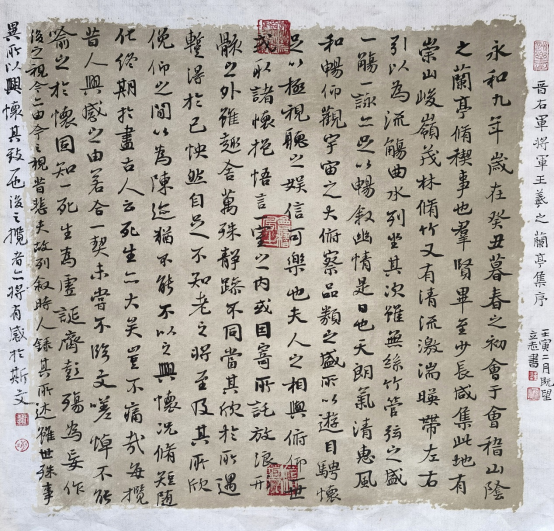 晋右軍將軍王羲之蘭亭集序
壬寅二月既望
立志書
永和九年歲在癸丑暮春之初會于會稽山陰
之蘭亭脩禊事也羣賢畢至少長咸集此地有
崇山峻嶺茂林脩竹又有清流激湍暎帶左右
引以為流觴曲水列坐其次雖無絲竹管弦之盛
一觴一詠亦足以暢叙幽情是日也天朗氣清惠風
和暢仰觀宇宙之大俯察品類之盛所以遊目騁懷
足以極視聽之娛信可樂也夫人之相與俯仰一世
或取諸懷抱悟言一室之内或因寄所託放浪形
骸之外雖趣舍萬殊靜躁不同當其欣於所遇
蹔得於己怏然自足不知老之將至及其所欣
俛仰之間以為陳迹猶不能不以之興懷況脩短隨
化終期於盡古人云死生亦大矣豈不痛哉每攬
昔人興感之由若合一契未嘗不臨文嗟悼不能
喻之於懷固知一死生為虛誕齊彭殤為妄作
後之視今亦由今之視昔悲夫故列叙時人錄其所述雖世殊事
異所以興懷其致一也後之攬者亦將有感於斯文